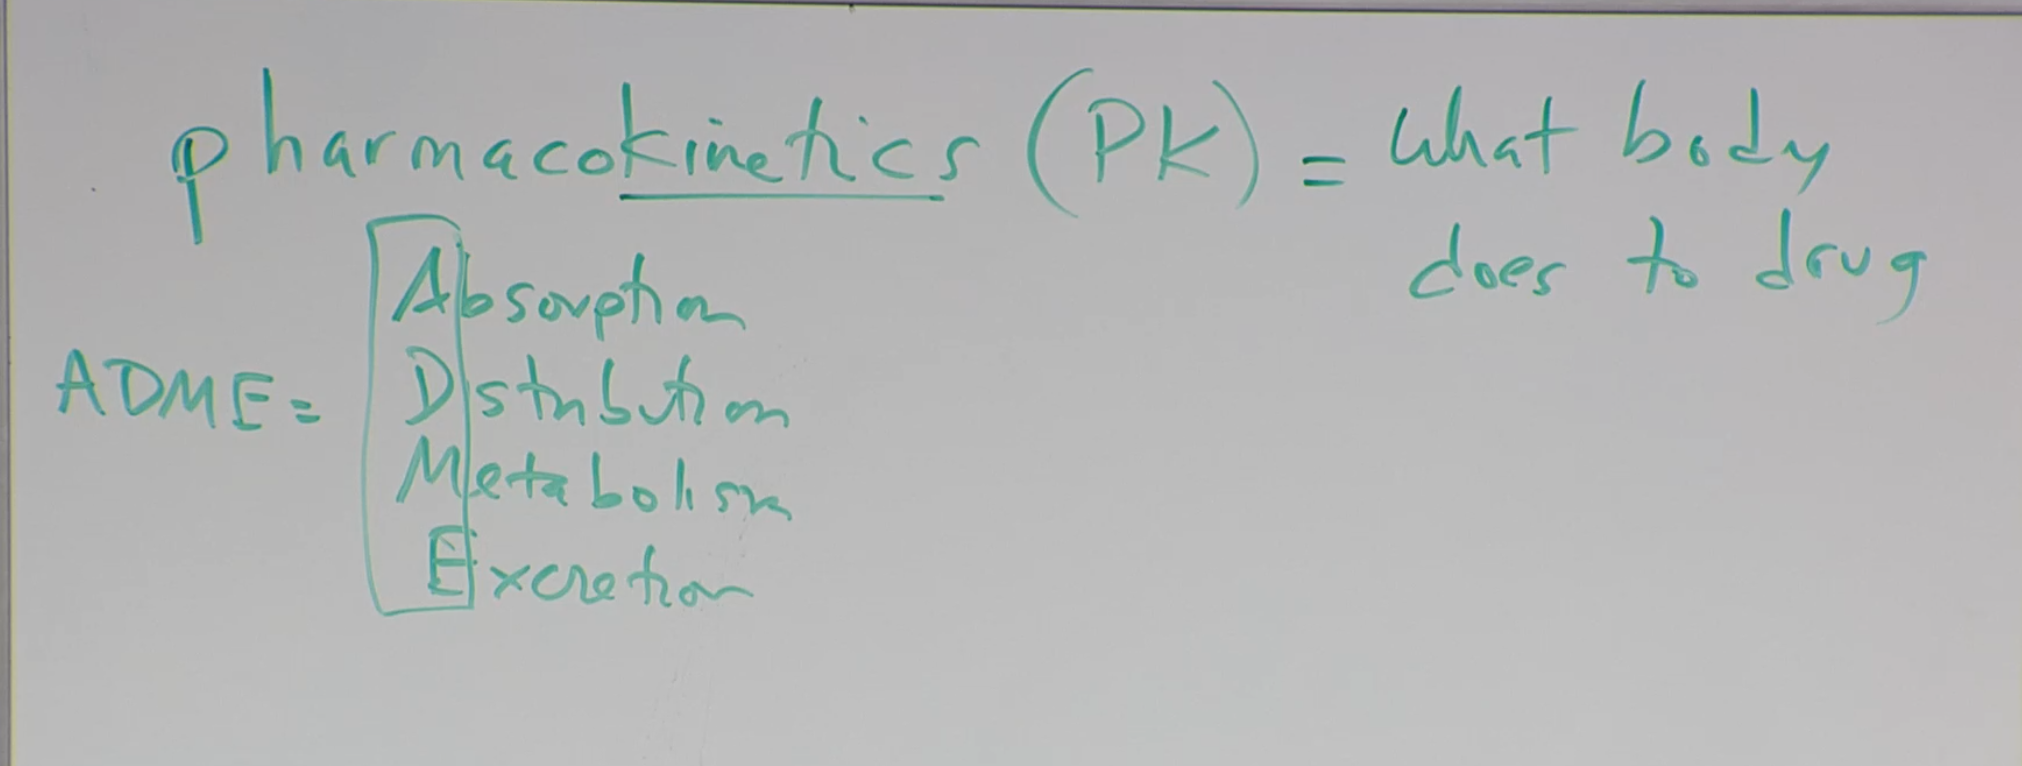 pharmacokinetics (PK) = what body
does to drug
Absorption
ADME = Distribution
Metabolism
Excretion